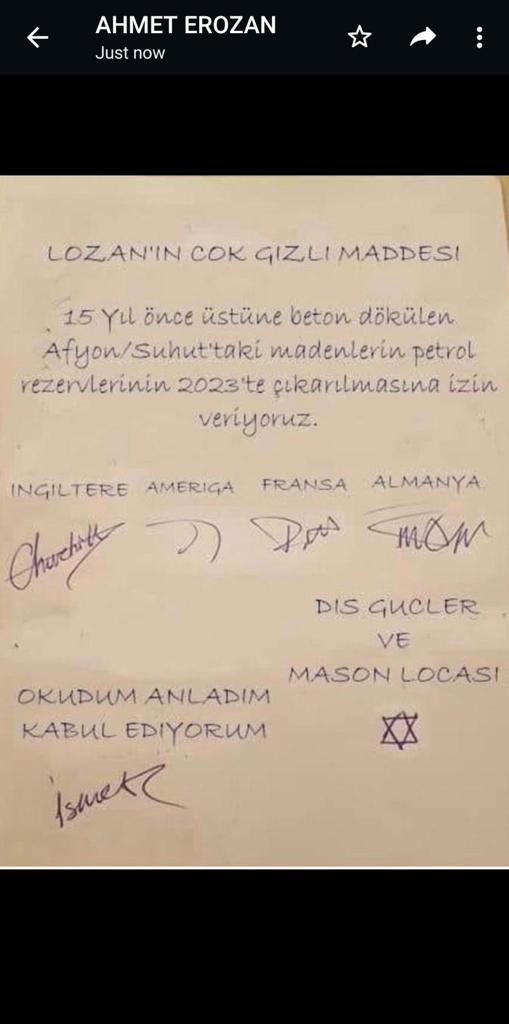 AHMET EROZAN
Just now
LOZAN'IN COK GIZLI MADDESI
15 Yıl önce üstüne beton dökülen
Afyon/Suhut'taki madenlerin petrol
rezervlerinin 2023'te çıkarılmasına izin
veriyoruz.
INGILTERE AMERIGA FRANSA ALMANYA
Churchill
DIS GUCLER
VE
MASON LOCASI
OKUDUM ANLADIM
KABUL EDIYORUM
ismet